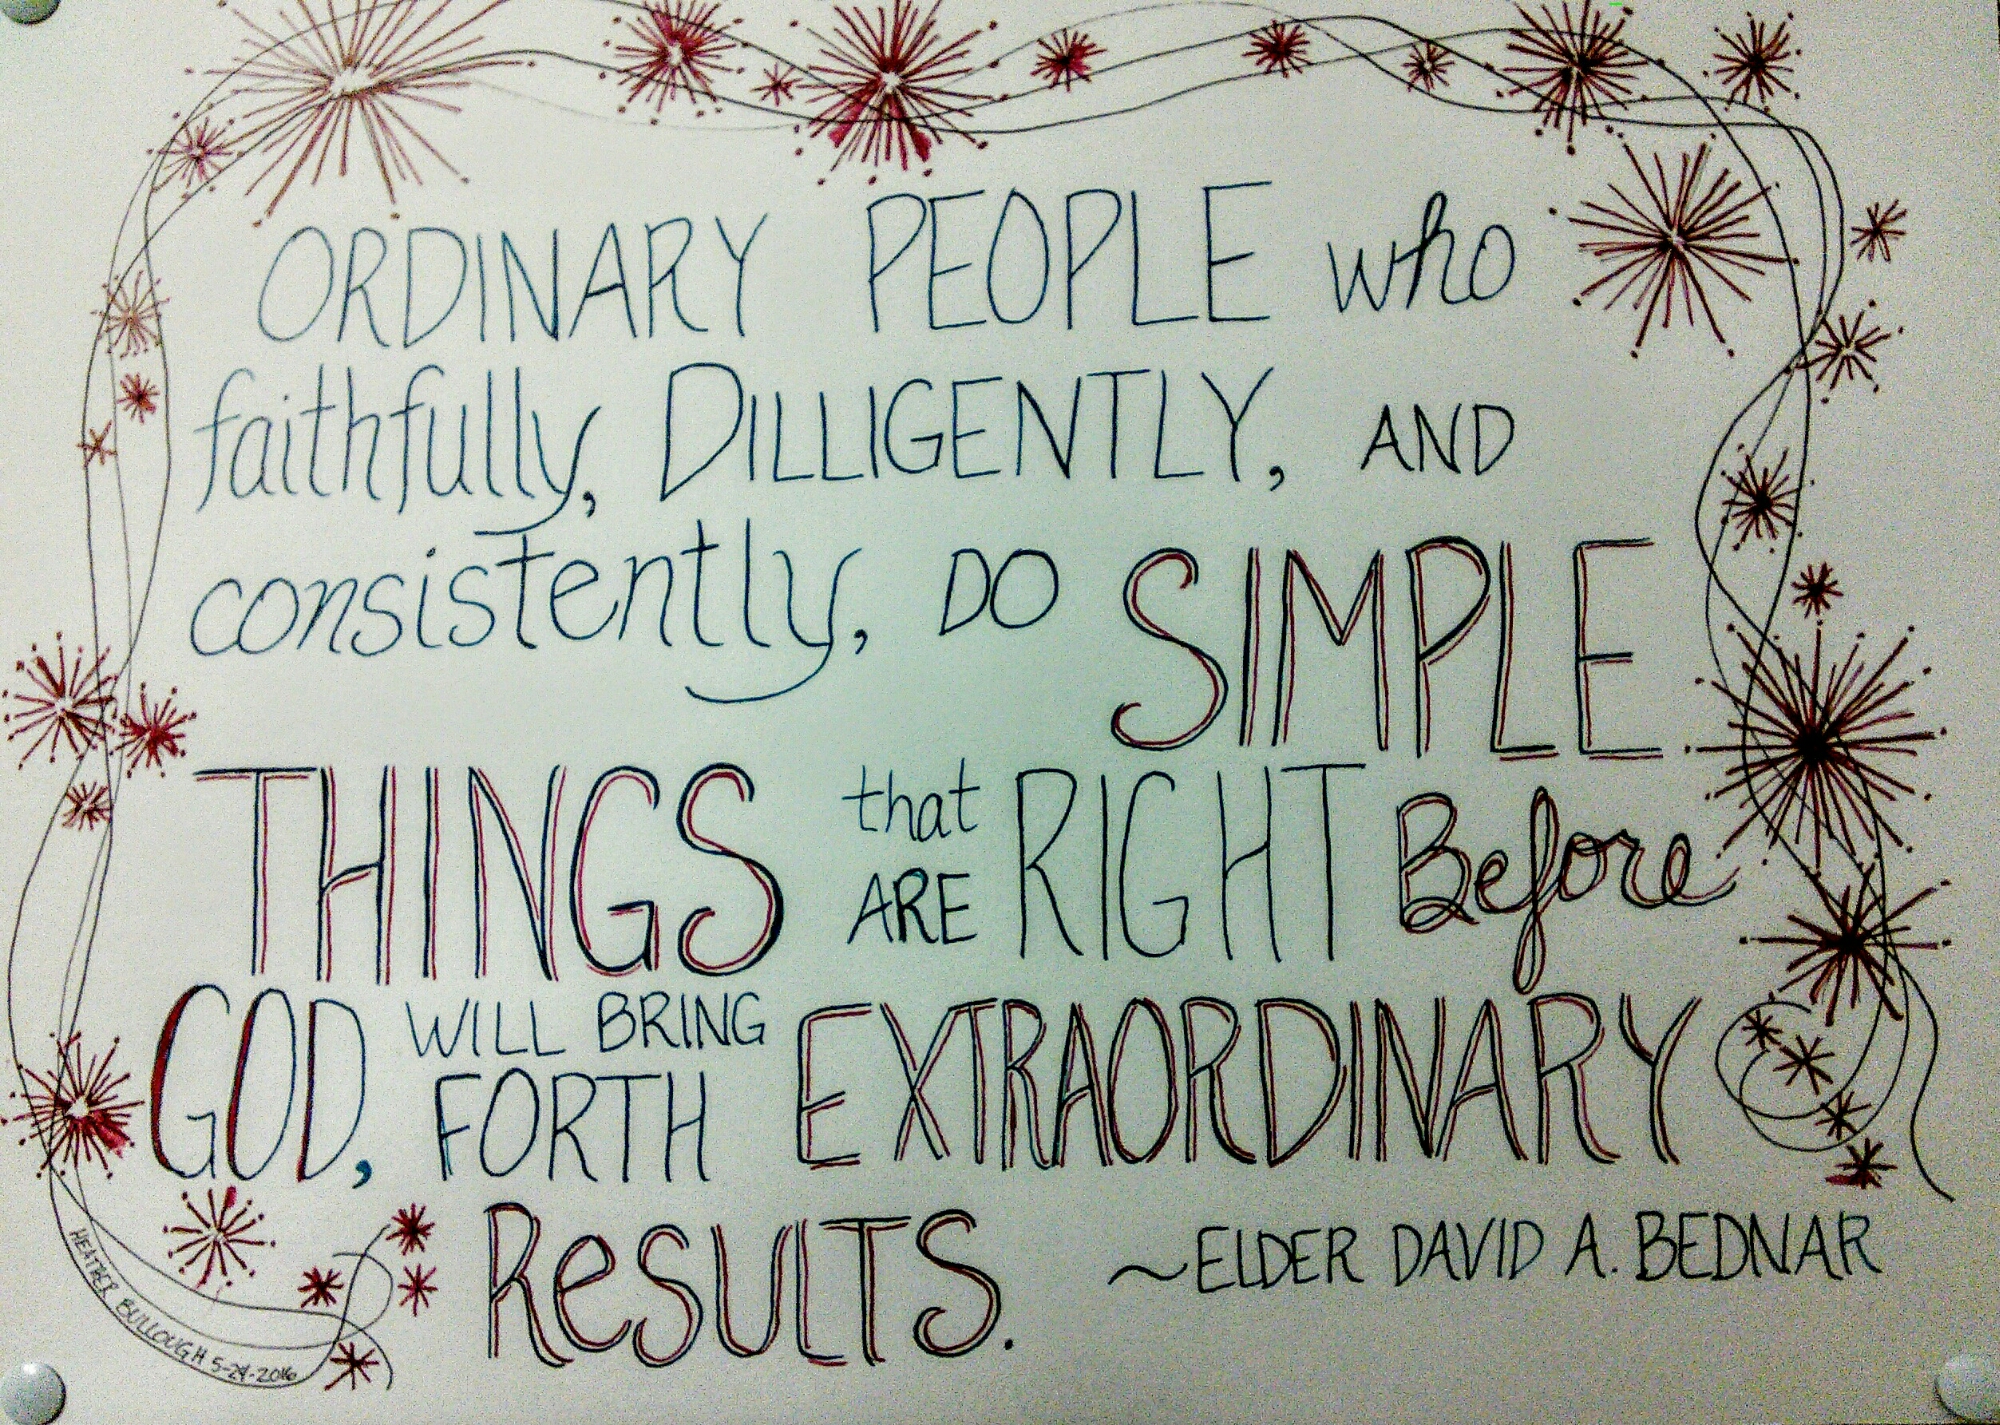 ORDINARY PEOPLE who
faithfully, DILLIGENTLY, AND
consistently, DO SIMPLE
THINGS that ARE RIGHT Before
GOD, WILL BRING FORTH EXTRAORDINARY
ReSULTS. ~ELDER DAVID A. BEDNAR
HEATHER BULLOUGH 5-24-2016